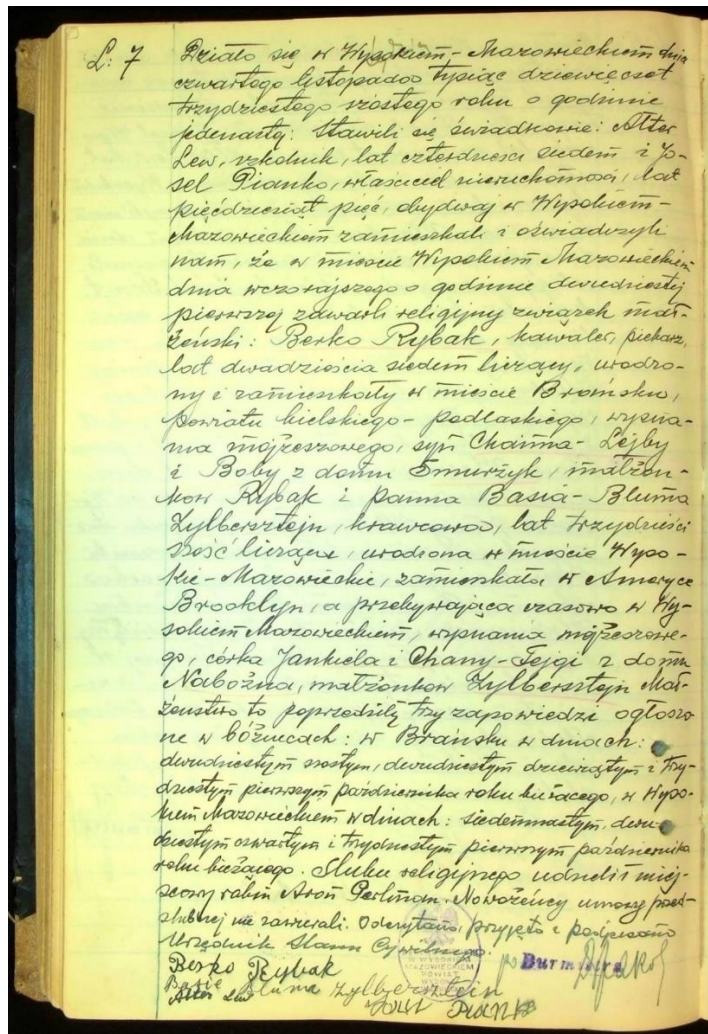 L: 7 Działo się w Wysokiem-Mazowieckiem dnia
czwartego listopada tysiąc dziewięćset
trzydziestego szóstego roku o godzinie
jedenastej: Stawili się świadkowie: Alter
Lew, szkolnik, lat czterdzieści siedem i Jo-
sel Pianko, właściciel nieruchomości, lat
pięćdziesiąt pięć, obydwaj w Wysokiem-
Mazowieckiem zamieszkali i oświadczyli
nam, że w mieście Wysokiem Mazowieckiem
dnia wczorajszego o godzinie dwudziestej
pierwszej zawarli religijny związek mał-
żeński: Berko Rybak, kawaler, piekarz,
lat dwadzieścia siedem liczący, urodzo-
ny i zamieszkały w mieście Brańsku,
powiatu bielskiego-podlaskiego, wyzna-
nia mojżeszowego, syn Chaima-Lejby
i Boby z domu Smurzyk, małżon-
ków Rybak i panna Basia-Bluma
Zylbersztejn, krawcowa, lat trzydzieści
sześć licząca, urodzona w mieście Wyso-
kie-Mazowieckie, zamieszkała w Ameryce
Brooklyn, a przebywająca czasowo w Wy-
sokiem Mazowieckiem, wyznania mojżeszowe-
go, córka Jankiela i Chany-Fejgi z domu
Nabożna, małżonków Zylbersztejn Mał-
żeństwo to poprzedziły trzy zapowiedzi ogłoszo-
ne w bóżnicach: w Brańsku w dniach:
dwudziestym szóstym, dwudziestym dziewiątym i trzy-
dziestym pierwszym października roku bieżącego, w Wyso-
kiem Mazowieckiem w dniach: siedemnastym, dwu-
dziestym czwartym i trzydziestym pierwszym października
roku bieżącego. Ślubu religijnego udzielił miej-
scowy rabin Aron Perlman. Nowożeńcy umowy przed-
ślubnej nie zawierali. Odczytano, przyjęto i podpisano
Urzędnik Stanu Cywilnego:
Berko Rybak
Burmistrz
Basia Bluma Zylbersztein
Alter Lew
Josel Pianko
W WYSOKIEM
MAZOWIECKIEM
POWIAT